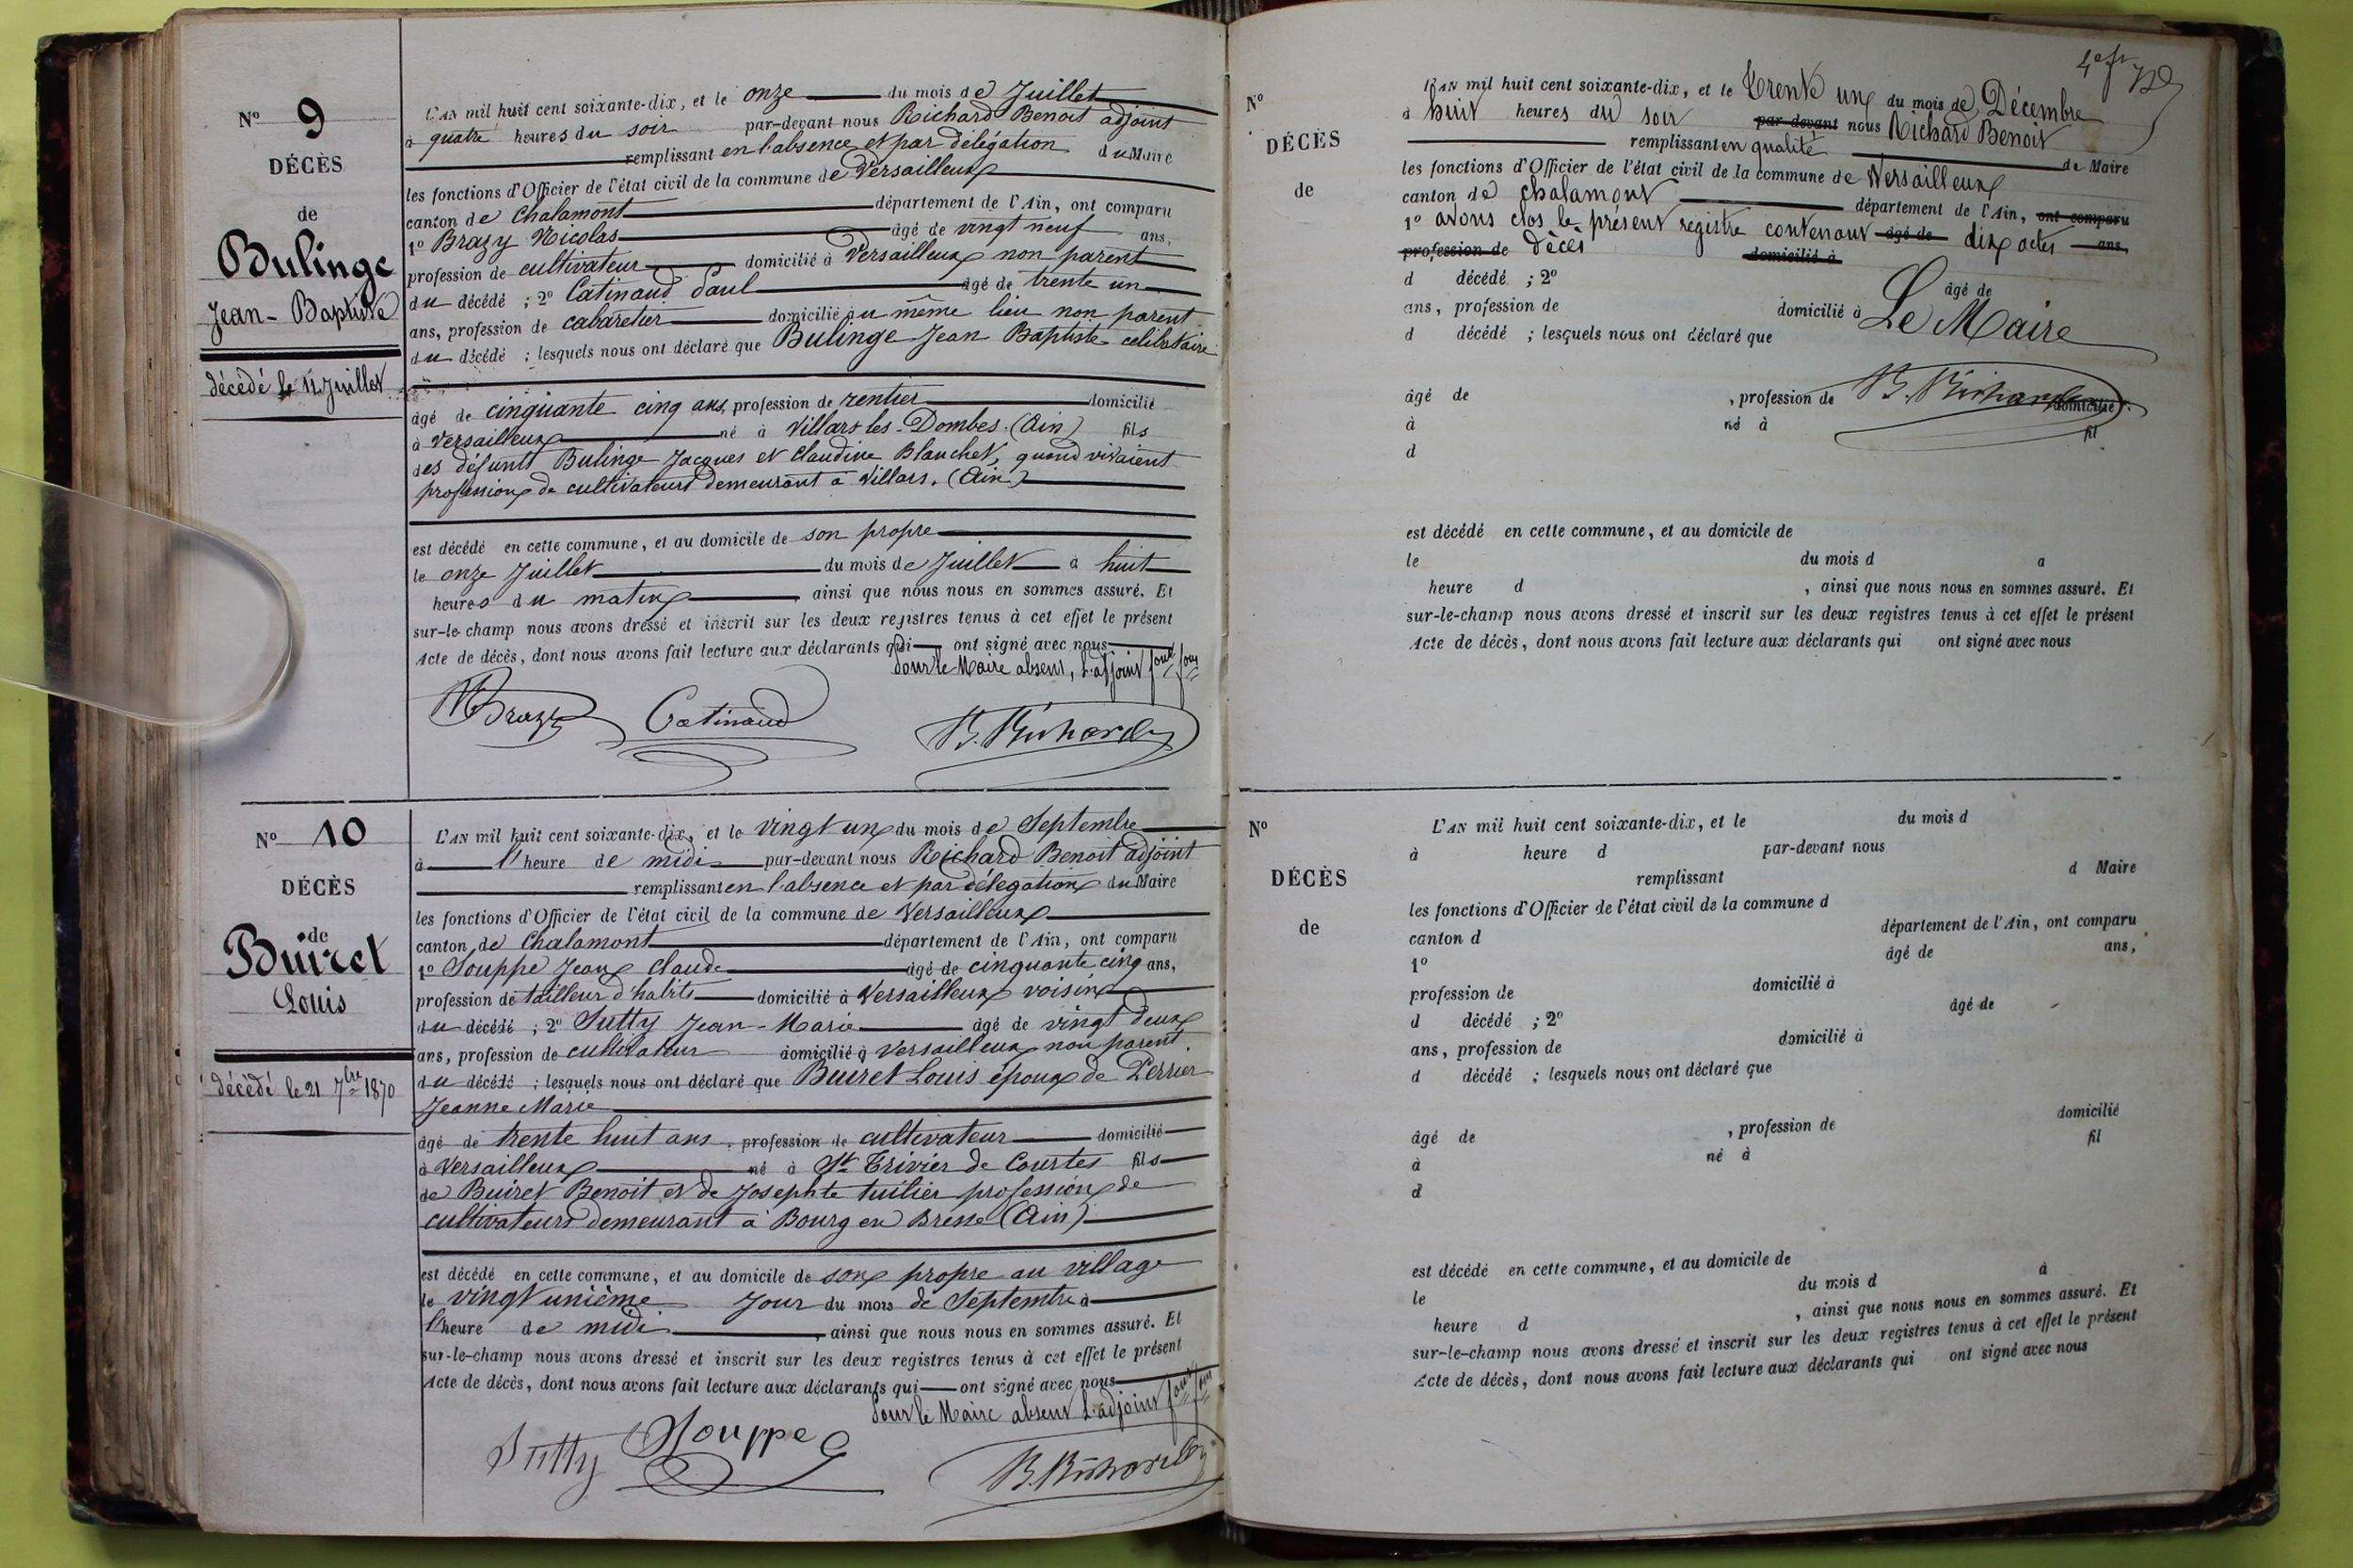 N° 9
DÉCÈS
de
Bulinge
Jean-Baptiste
décédé le 11 Juillet
L'AN mil huit cent soixante-dix, et le onze du mois de Juillet
à quatre heures du soir par-devant nous Richard Benoit adjoint
remplissant en l'absence et par délégation du Maire
les fonctions d'Officier de l'état civil de la commune de Versailleux
canton de Chalamont département de l'Ain, ont comparu
1° Brazy Nicolas âgé de vingt neuf ans,
profession de cultivateur domicilié à Versailleux non parent
du décédé ; 2° Catinaud Paul âgé de trente un
ans, profession de cabaretier domicilié au même lieu non parent
du décédé ; lesquels nous ont déclaré que Bulinge Jean Baptiste célibataire
âgé de cinquante cinq ans, profession de rentier domicilié
à Versailleux né à Villars les-Dombes (Ain) fils
des défunts Bulinge Jacques et Claudine Blanchet, quand vivaient
profession de cultivateurs demeurant à Villars. (Ain)
est décédé en cette commune, et au domicile de son propre
le onze Juillet du mois de Juillet à huit
heures du matin ainsi que nous nous en sommes assuré. Et
sur-le-champ nous avons dressé et inscrit sur les deux registres tenus à cet effet le présent
Acte de décès, dont nous avons fait lecture aux déclarants qui ont signé avec nous
Pour le Maire absent, L'adjoint
N Brazy Catinaud B. Richard
N° 10
DÉCÈS
de
Buiret
Louis
décédé le 21 7bre 1870
L'AN mil huit cent soixante-dix, et le vingt un du mois de Septembre
à l'heure de midi par-devant nous Richard Benoit adjoint
remplissant en l'absence et par délégation du Maire
les fonctions d'Officier de l'état civil de la commune de Versailleux
canton de Chalamont département de l'Ain, ont comparu
1° Souppe Jean Claude âgé de cinquante cinq ans,
profession de tailleur d'habits domicilié à Versailleux voisin
du décédé ; 2° Sutty Jean-Marie âgé de vingt deux
ans, profession de cultivateur domicilié à Versailleux non parent.
du décédé ; lesquels nous ont déclaré que Buiret Louis époux de Perrier
Jeanne Marie
âgé de trente huit ans, profession de cultivateur domicilié
à Versailleux né à St Trivier de Courtes fils
de Buiret Benoit et de Josephte tuilier profession de
cultivateurs demeurant à Bourg en Bresse (Ain)
est décédé en cette commune, et au domicile de son propre au village
le vingt unième Jour du mois de Septembre à
l'heure de midi, ainsi que nous nous en sommes assuré. Et
sur-le-champ nous avons dressé et inscrit sur les deux registres tenus à cet effet le présent
Acte de décès, dont nous avons fait lecture aux déclarants qui ont signé avec nous
Pour le Maire absent L'adjoint
Sutty Souppe B. Richard
N°
DÉCÈS
de
L'AN mil huit cent soixante-dix, et le Trente un du mois de Décembre
à huit heures du soir par-devant nous Richard Benoit
remplissant en qualité de Maire
les fonctions d'Officier de l'état civil de la commune de Versailleux
canton de Chalamont département de l'Ain, ont comparu
1° avons clos le présent registre contenant âgé de dix actes ans,
profession de décès domicilié à
d décédé ; 2° âgé de
ans, profession de domicilié à Le Maire
d décédé ; lesquels nous ont déclaré que
B. Richard
âgé de , profession de domicilié
à né à fil
d
est décédé en cette commune, et au domicile de
le du mois d a
heure d , ainsi que nous nous en sommes assuré. Et
sur-le-champ nous avons dressé et inscrit sur les deux registres tenus à cet effet le présent
Acte de décès, dont nous avons fait lecture aux déclarants qui ont signé avec nous
N°
DÉCÈS
de
L'AN mil huit cent soixante-dix, et le du mois d
à heure d par-devant nous
remplissant d Maire
les fonctions d'Officier de l'état civil de la commune d
canton d département de l'Ain, ont comparu
1° âgé de ans,
profession de domicilié à
d décédé ; 2° âgé de
ans, profession de domicilié à
d décédé ; lesquels nous ont déclaré que
âgé de , profession de domicilié
à né à fil
d
est décédé en cette commune, et au domicile de
le du mois d à
heure d , ainsi que nous nous en sommes assuré. Et
sur-le-champ nous avons dressé et inscrit sur les deux registres tenus à cet effet le présent
Acte de décès, dont nous avons fait lecture aux déclarants qui ont signé avec nous